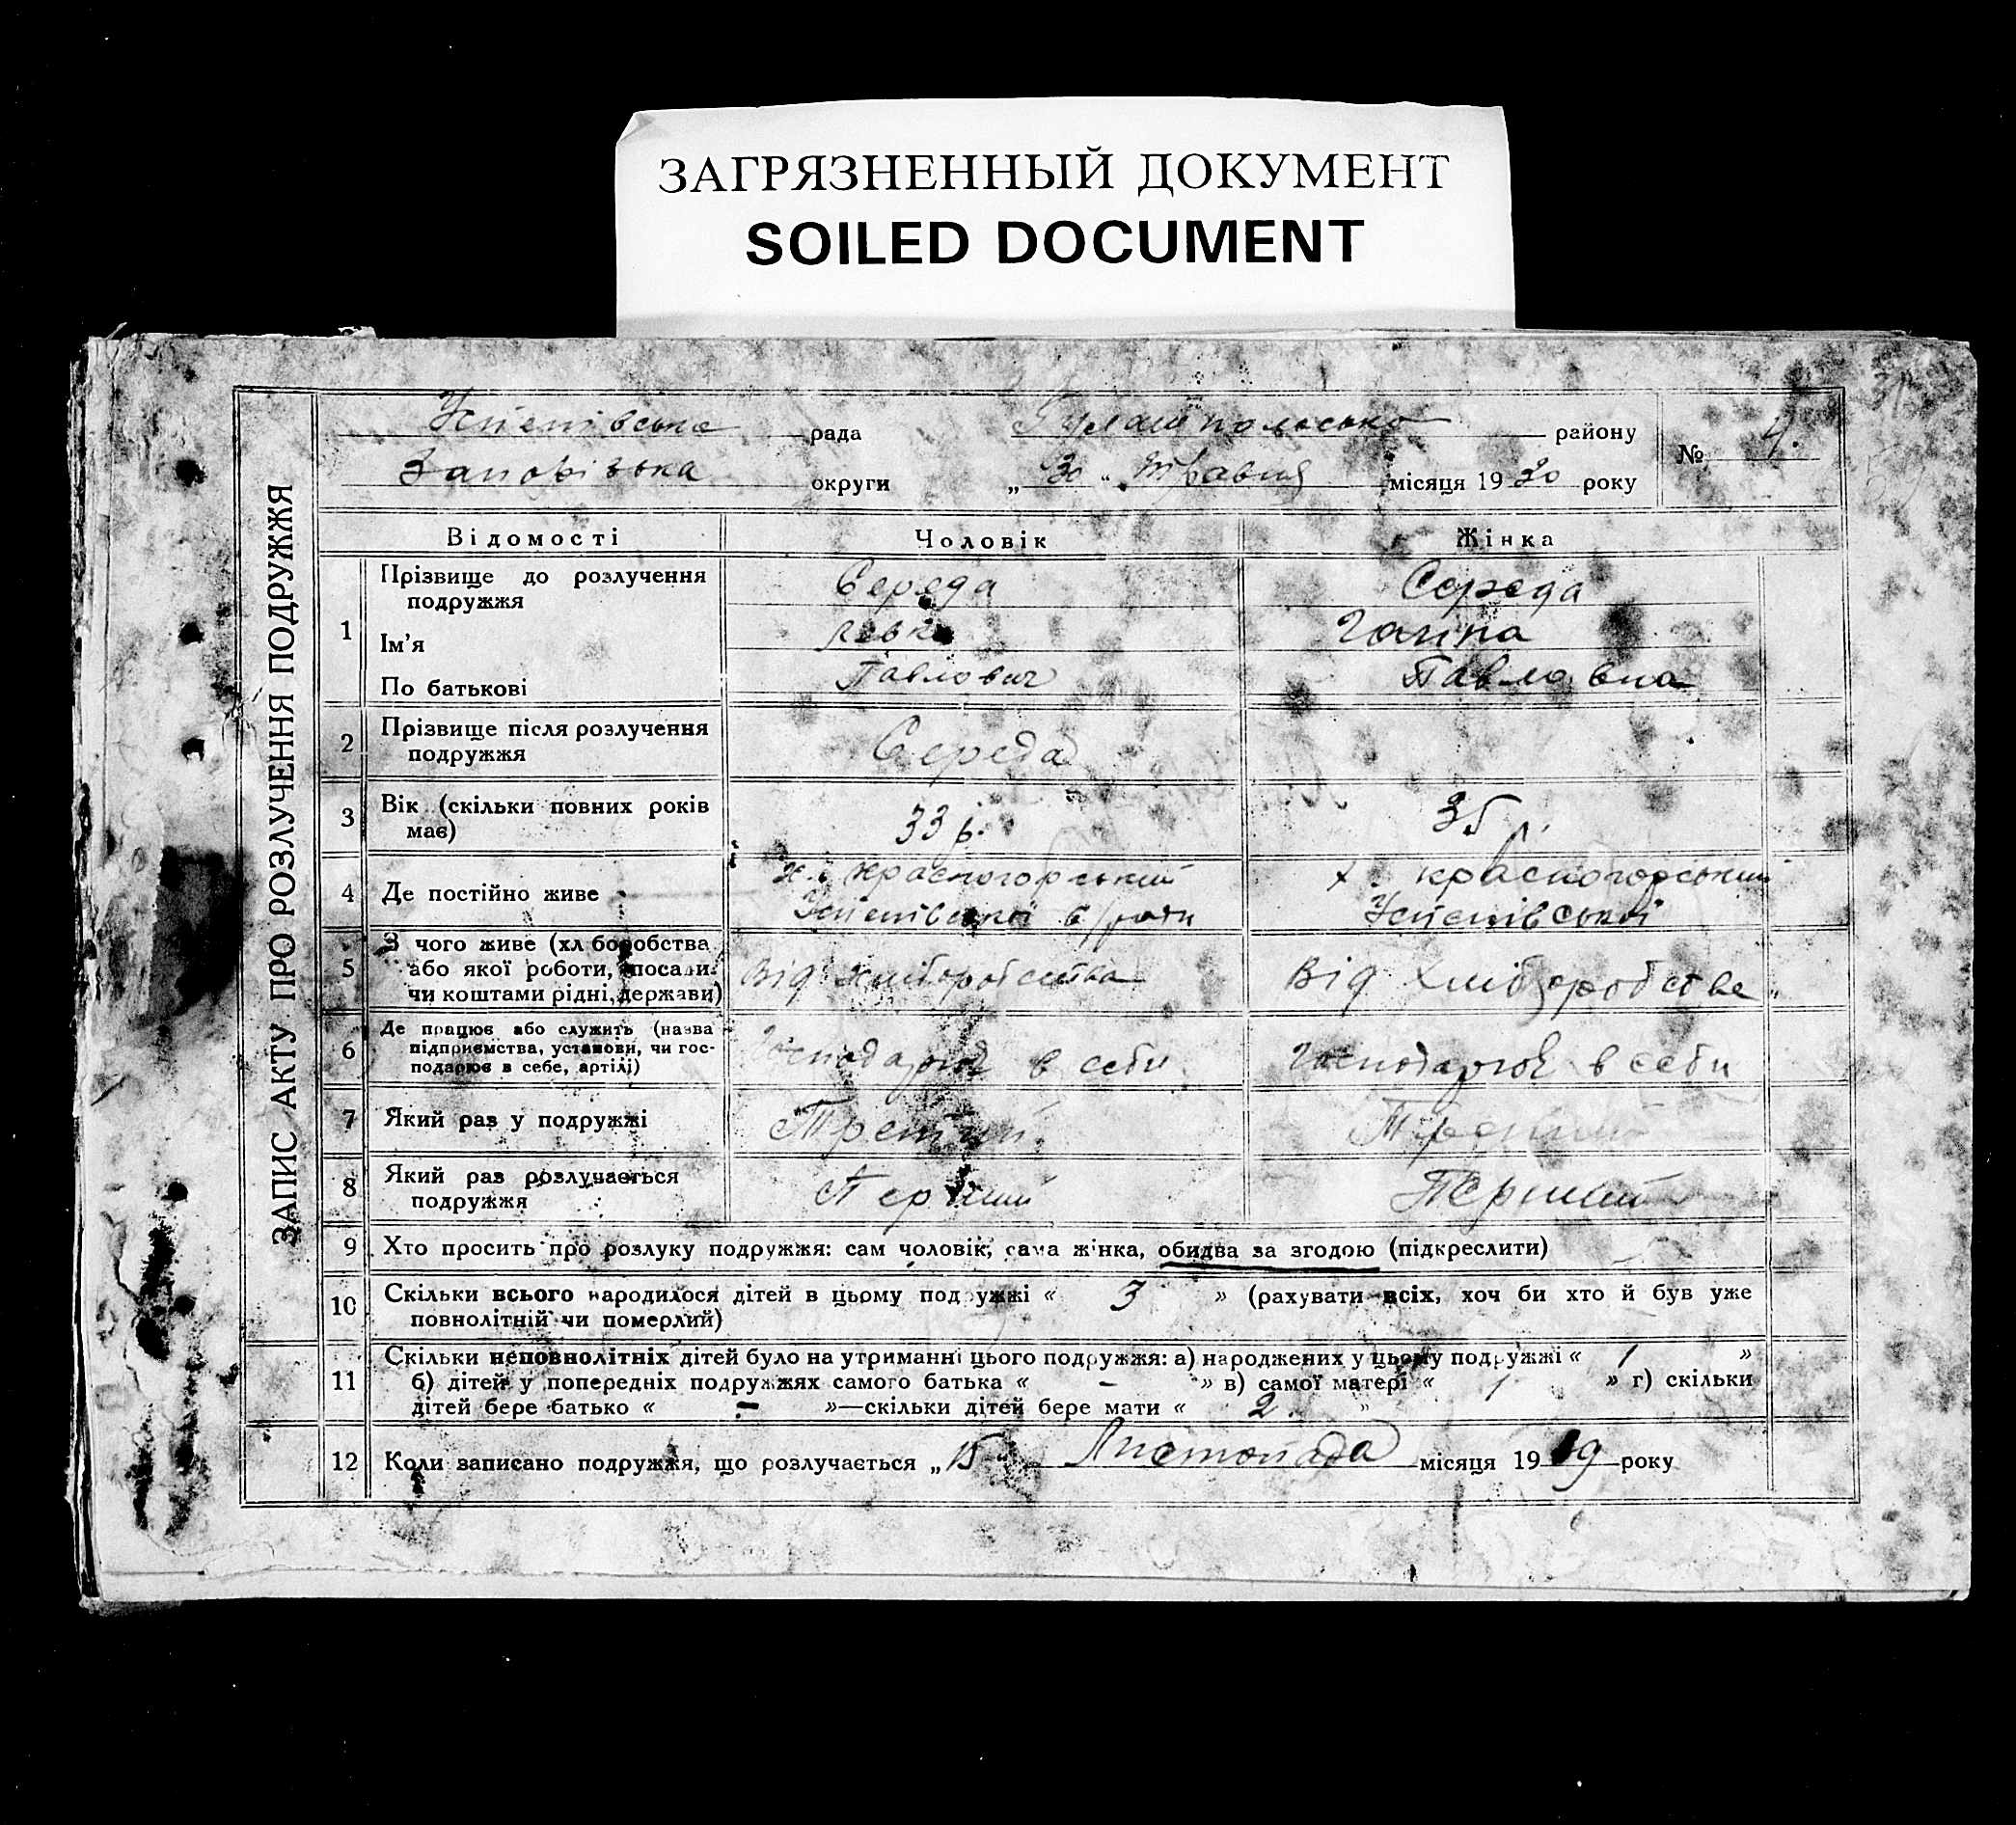 ЗАГРЯЗНЕННЫЙ ДОКУМЕНТ
SOILED DOCUMENT
ЗАПИС АКТУ ПРО РОЗЛУЧЕННЯ ПОДРУЖЖЯ
Успенівська рада Гуляйпольсько району
Запорізька округи „30" Травня місяця 1930 року
№ 4.
Відомості Чоловік Жінка
1 Прізвище до розлучення подружжя Середа Середа
Ім'я Левко Ганна
По батькові Павлович Павловна
2 Прізвище після розлучення подружжя Середа
3 Вік (скільки повних років має) 33 р. 35 р.
4 Де постійно живе х. красногорський х. красногорський
Успенівської с/ради Успенівської
5 З чого живе (хліборобства
або якої роботи, посади
чи коштами рідні, держави) Від хліборобства Від хліборобства
6 Де працює або служить (назва
підприємства, установи, чи гос-
подарює в себе, артілі) Господарює в себи Господарює в себи
7 Який раз у подружжі Третий Третий
8 Який раз розлучається
подружжя Перший Перший
9 Хто просить про розлуку подружжя: сам чоловік, сама жінка, обидва за згодою (підкреслити)
10 Скільки всього народилося дітей в цьому подружжі « 3 » (рахувати всіх, хоч би хто й був уже
повнолітній чи померлий)
11 Скільки неповнолітніх дітей було на утриманні цього подружжя: а) народжених у цьому подружжі « 1 »
б) дітей у попередніх подружжях самого батька « - » в) самої матері « 1 » г) скільки
дітей бере батько « - »—скільки дітей бере мати « 2 »
12 Коли записано подружжя, що розлучається „15" Листопада місяця 19 року